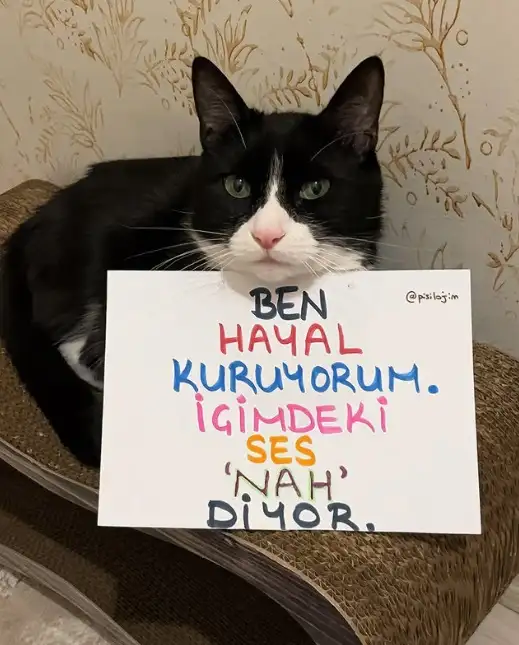 @pisilojim
BEN
HAYAL
KURUYORUM.
İÇİMDEKİ
SES
'NAH'
DİYOR.